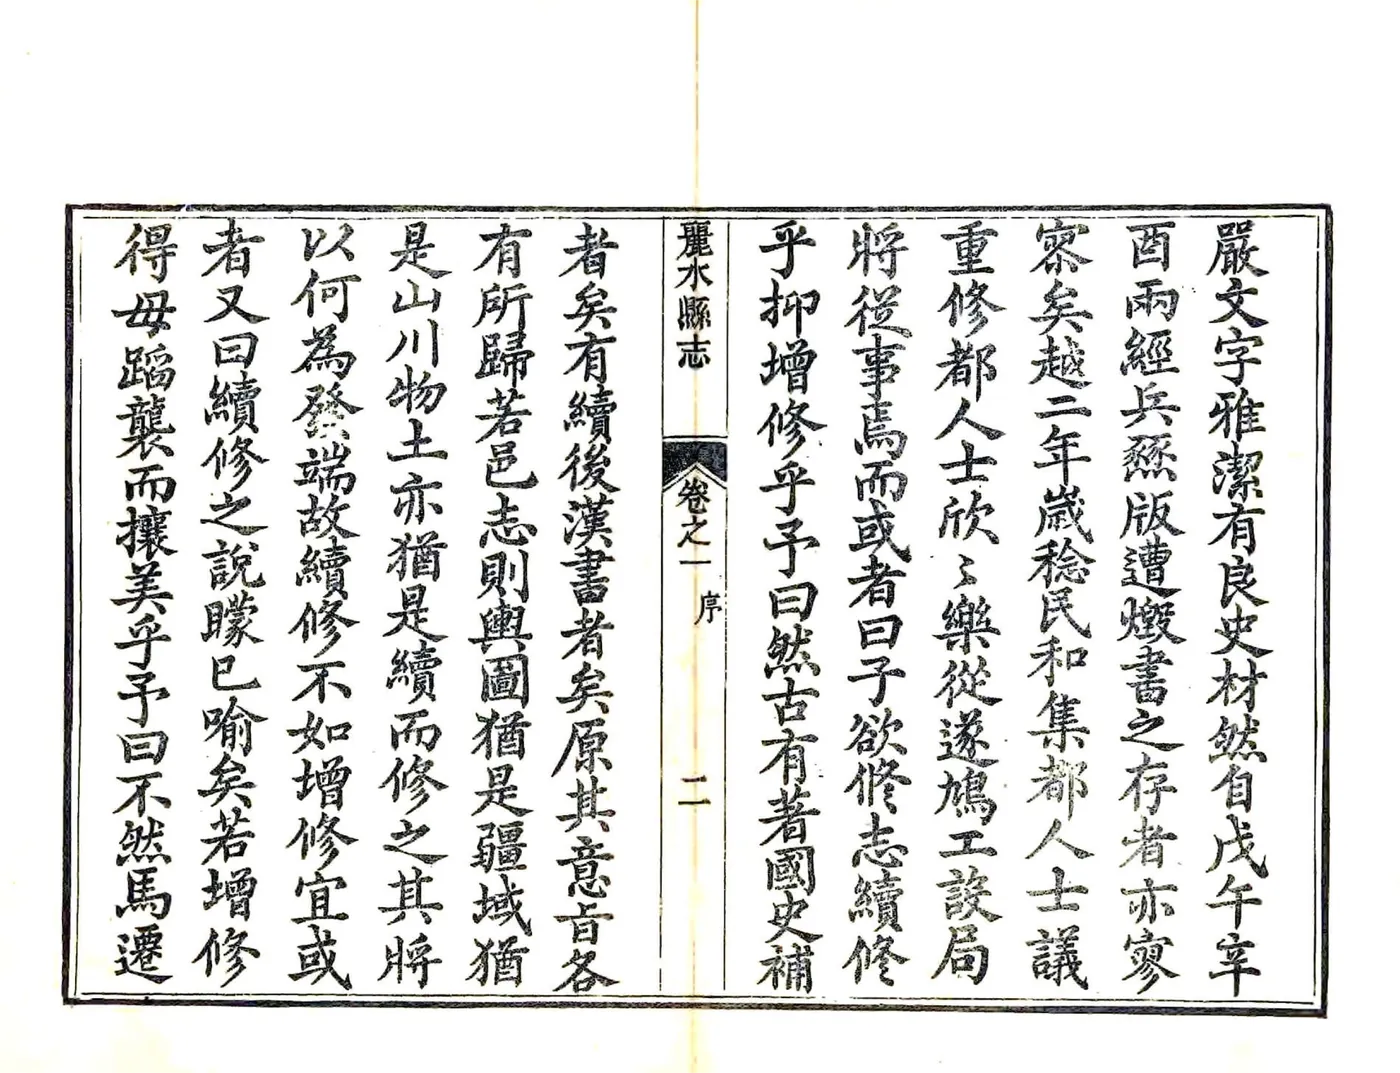 嚴文字雅潔有良史材然自戊午辛
酉兩經兵燹版遭燬書之存者亦寥
寥矣越二年嵗稔民和集都人士議
重修都人士欣〻樂從遂鳩工設局
將從事焉而或者曰子欲修志續修
乎抑增修乎予曰然古有著國史補
麗水縣志
卷之一
序
二
者矣有續後漢書者矣原其意旨各
有所歸若邑志則輿圖猶是疆域猶
是山川物土亦猶是續而修之其將
以何為發端故續修不如增修宜或
者又曰續修之說矇已喻矣若增修
得毋蹈襲而攘美乎予曰不然馬遷